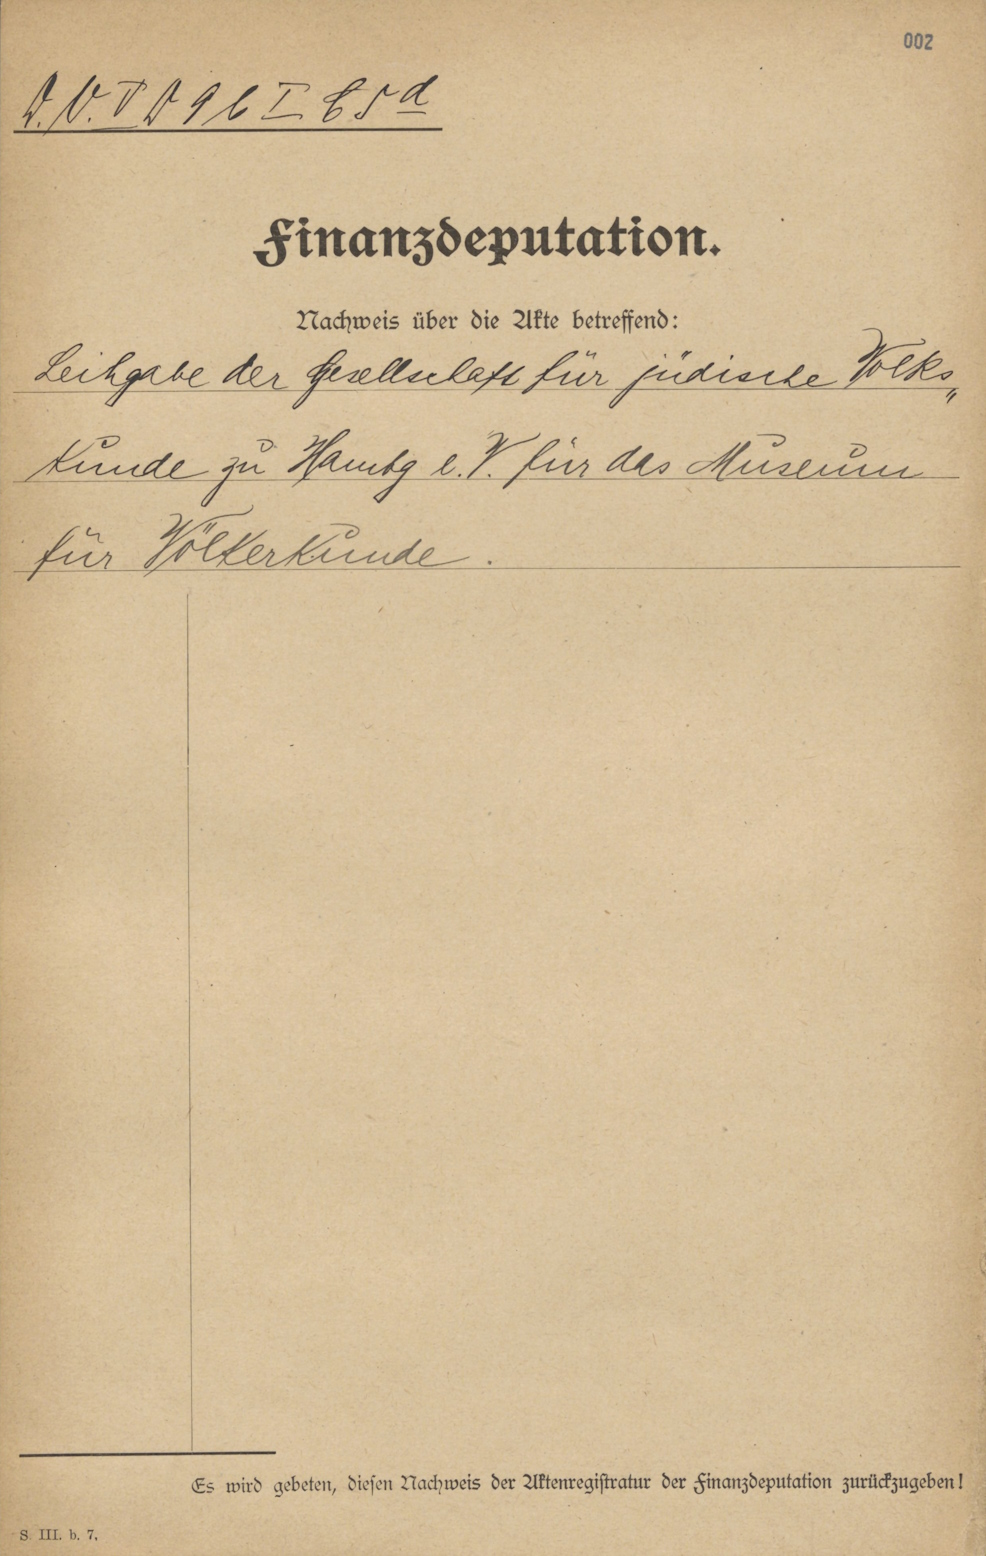 002
D.V. V D 9 b I C 5 d
Finanzdeputation.
Nachweis über die Akte betreffend:
Leihgabe der Gesellschaft für jüdische Volks„
kunde zu Hambg e.V. für das Museum
für Völkerkunde.
Es wird gebeten, diesen Nachweis der Aktenregistratur der Finanzdeputation zurückzugeben!
S. III. b. 7.